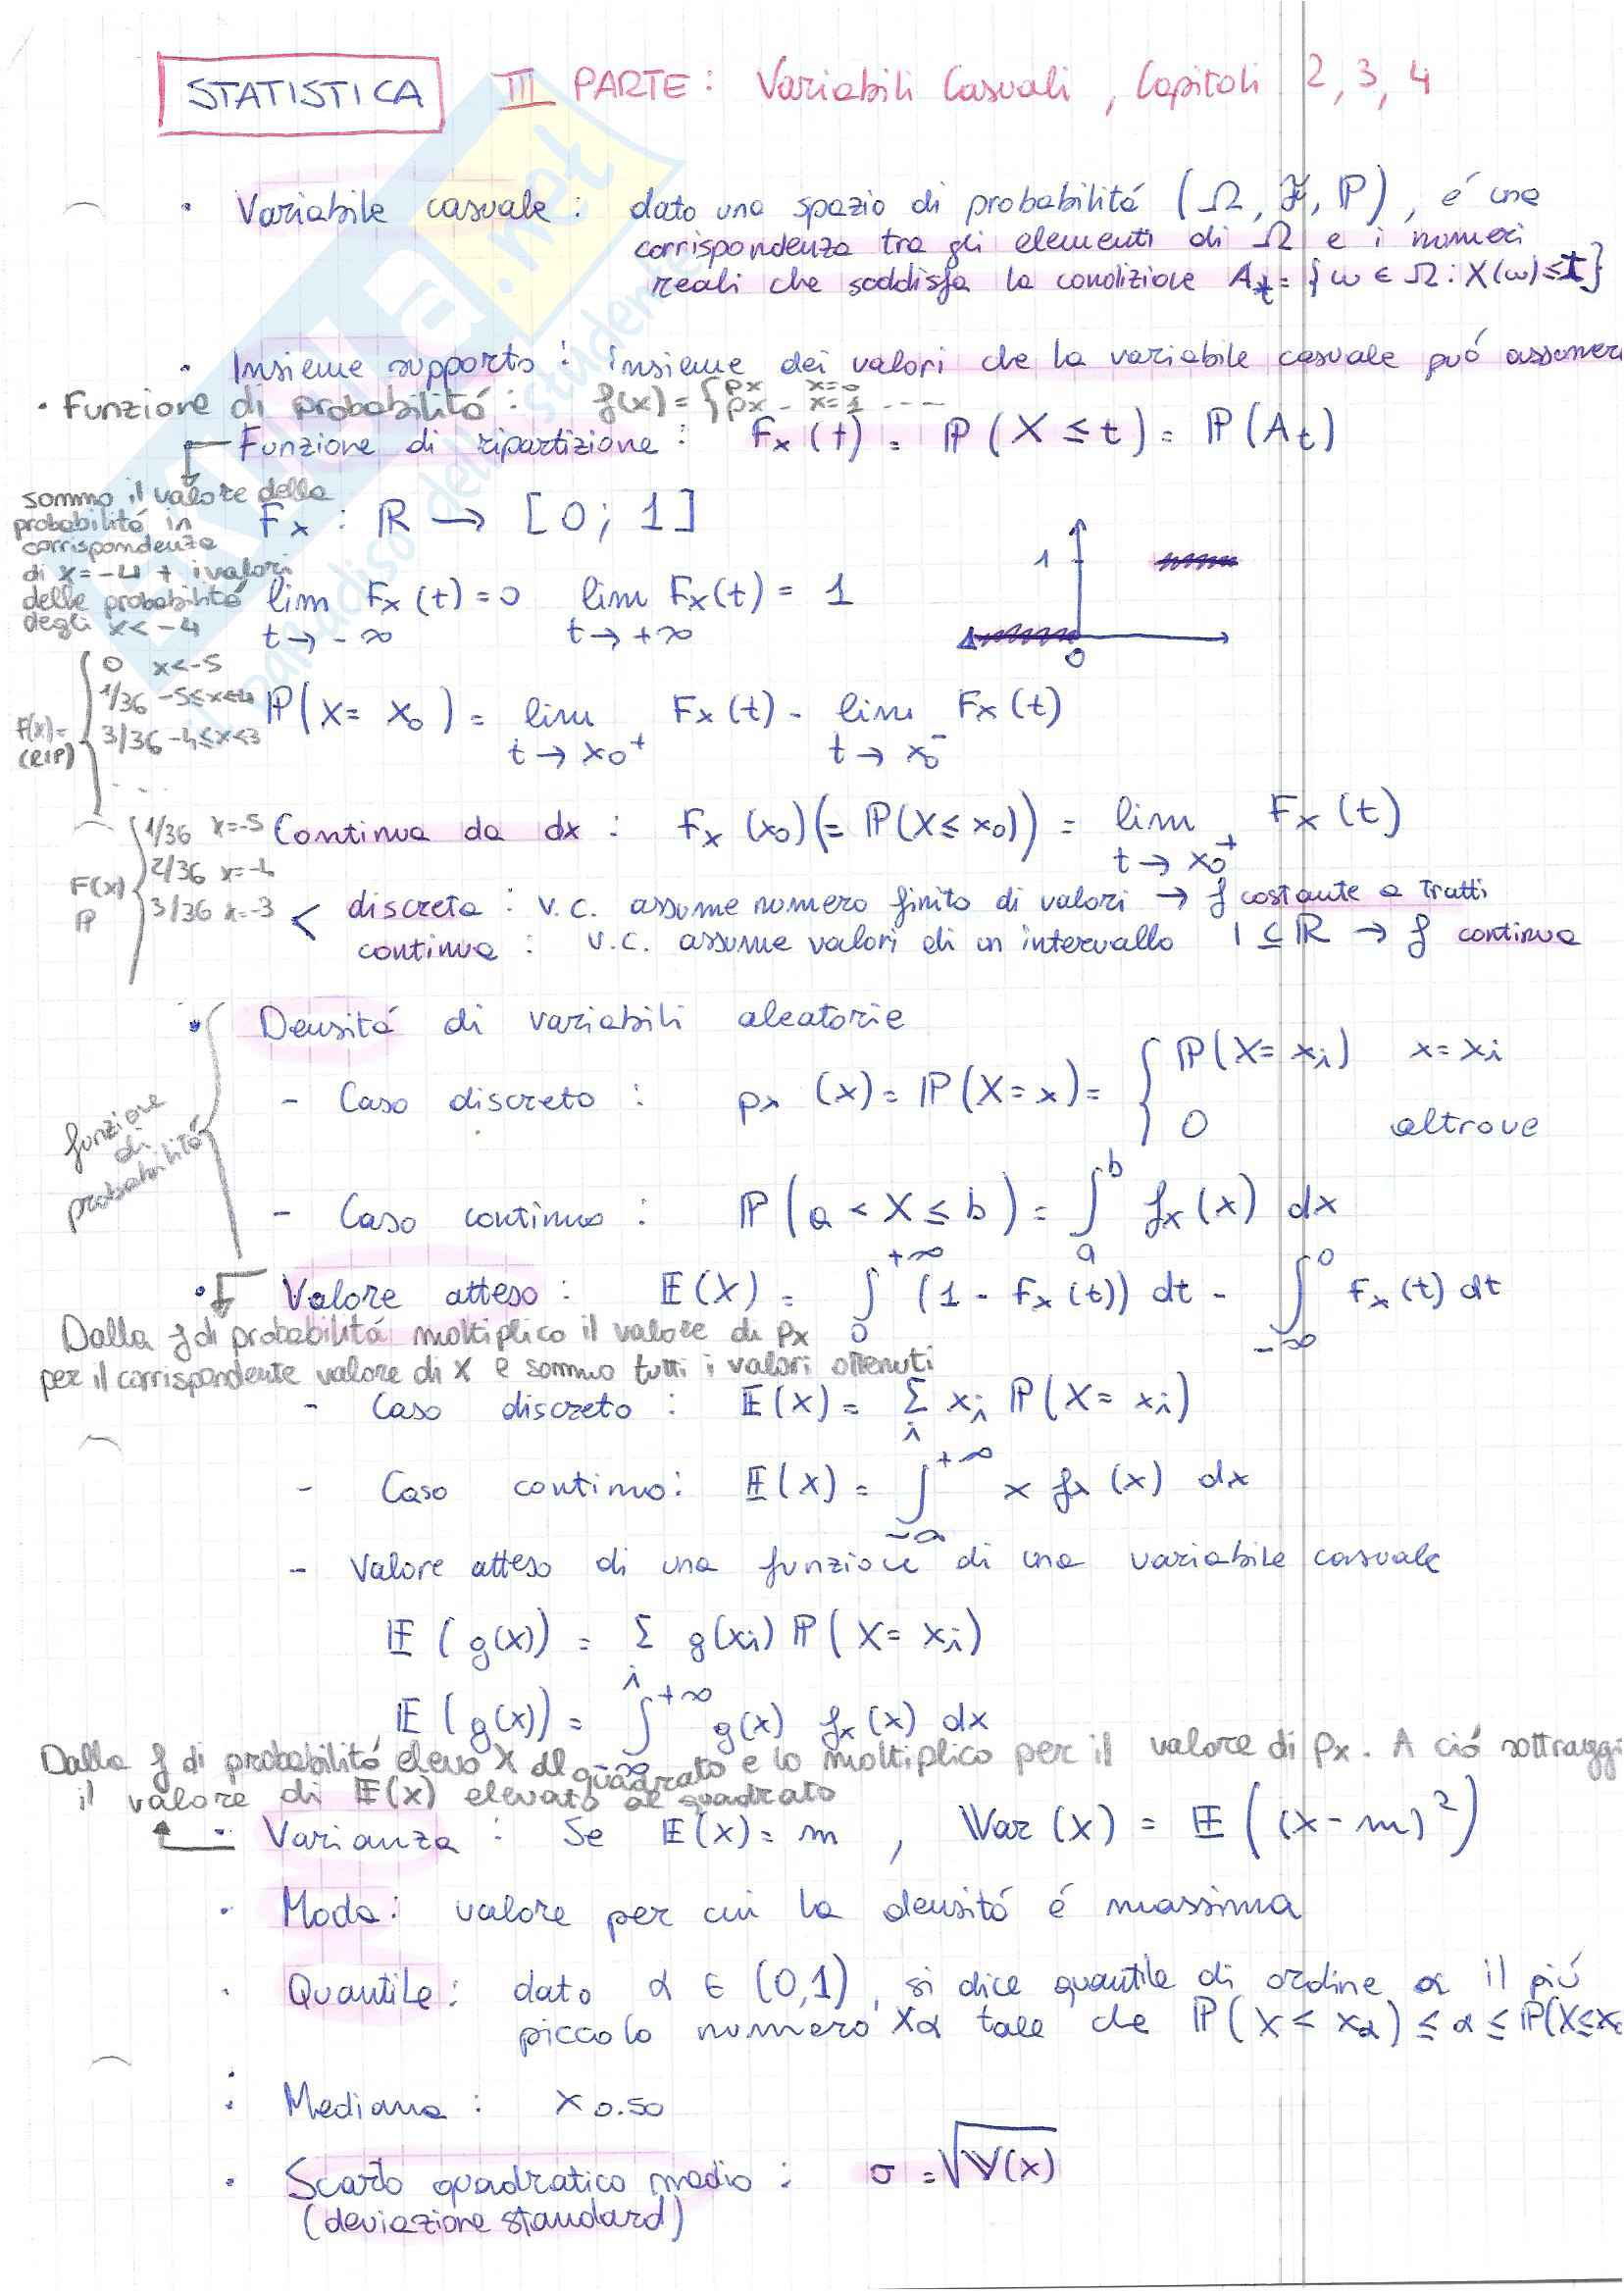 STATISTICA III PARTE: Variabili Casuali, Capitoli 2, 3, 4
• Variabile casuale: dato uno spazio di probabilitá (Ω, ℱ, ℙ), é una
corrispondenza tra gli elementi di Ω e i numeri
reali che soddisfa la condizione At = {ω ∈ Ω : X(ω) ≤ t}
• Insieme supporto: insieme dei valori che la variabile casuale puó assumere
• Funzione di probabilitá: f(x) = { px x=0
px x=1 ...
Funzione di ripartizione: Fx(t) = ℙ(X ≤ t) = ℙ(At)
sommo il valore della
probabilitá in
corrispondenza
di x=-4 + i valori
delle probabilitá
degli x<-4
Fx : ℝ → [0; 1]
1
0
lim Fx(t) = 0 lim Fx(t) = 1
t→-∞ t→+∞
F(x)= (RIP) { 0 x<-5
1/36 -5≤x<-4
3/36 -4≤x<3
...
ℙ(X = x0) = lim Fx(t) - lim Fx(t)
t→x0+ t→x0-
F(x) ℙ { 1/36 x=-5
2/36 x=-4
3/36 x=-3
Continua da dx: Fx(x0)(= ℙ(X ≤ x0)) = lim Fx(t)
t→x0+
< discreta: v.c. assume numero finito di valori → f costante a tratti
continua: v.c. assume valori di un intervallo I ⊆ ℝ → f continua
• Densitá di variabili aleatorie
funzione
di
probabilitá
- Caso discreto: px(x) = ℙ(X = x) = { ℙ(X = xi) x = xi
0 altrove
- Caso continuo: ℙ(a < X ≤ b) = ∫ab fx(x) dx
• Valore atteso: 𝔼(X) = ∫0+∞ (1 - Fx(t)) dt - ∫-∞0 Fx(t) dt
Dalla f di probabilitá moltiplico il valore di px
per il corrispondente valore di X e sommo tutti i valori ottenuti
- Caso discreto: 𝔼(X) = Σi xi ℙ(X = xi)
- Caso continuo: 𝔼(X) = ∫-∞+∞ x fx(x) dx
- Valore atteso di una funzione di una variabile casuale
𝔼(g(x)) = Σi g(xi) ℙ(X = xi)
𝔼(g(x)) = ∫-∞+∞ g(x) fx(x) dx
Dalla f di probabilitá elevo X al quadrato e lo moltiplico per il valore di px. A ció sottraggo
il valore di 𝔼(x) elevato al quadrato
• Varianza: Se 𝔼(X) = m, Var(X) = 𝔼((x - m)²)
• Moda: valore per cui la densitá é massima
• Quantile: dato α ∈ (0,1), si dice quantile di ordine α il piú
piccolo numero xα tale che ℙ(X < xα) ≤ α ≤ ℙ(X ≤ xα
• Mediana: x0.50
• Scarto quadratico medio: σ = √𝕍(x)
(deviazione standard)